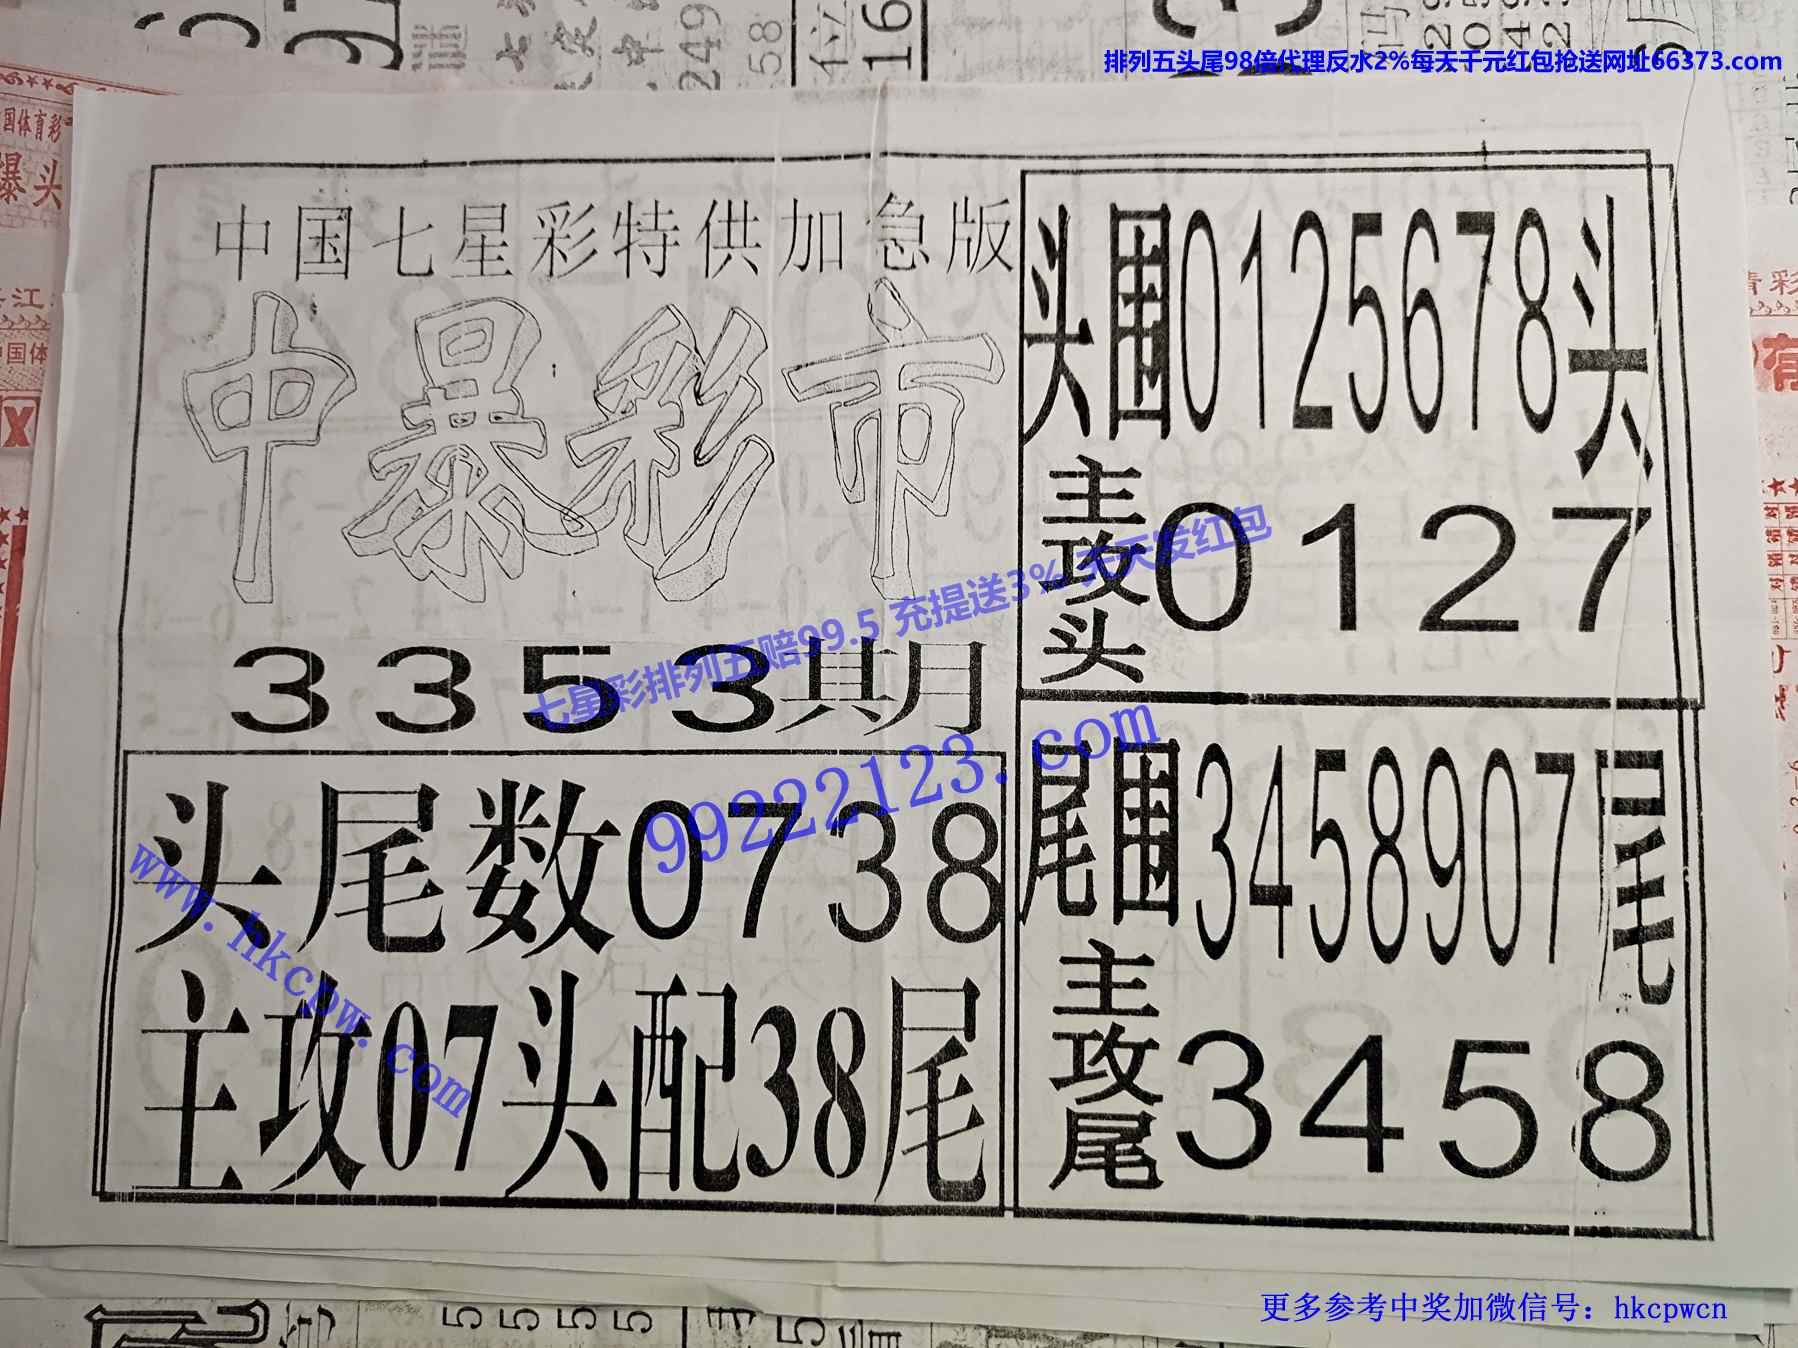 排列五头尾98倍代理反水2%每天千元红包抢送网址66373.com
中国七星彩特供加急版
中暴彩市
3353期
头围0125678头
主攻头0127
七星彩排列五赔99.5 充提送3% 天天发红包
99222123.com
头尾数0738
主攻07头配38尾
www.hkcpw.com
尾围3458907尾
主攻尾3458
更多参考中奖加微信号：hkcpwcn